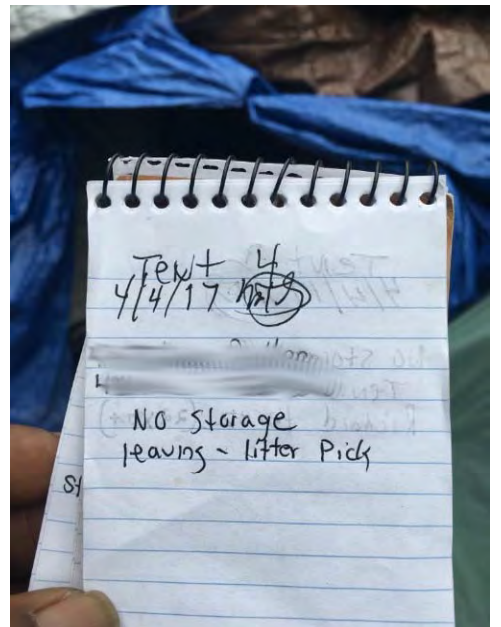 Tent 4
4/4/17
No storage
leaving - litter Pick